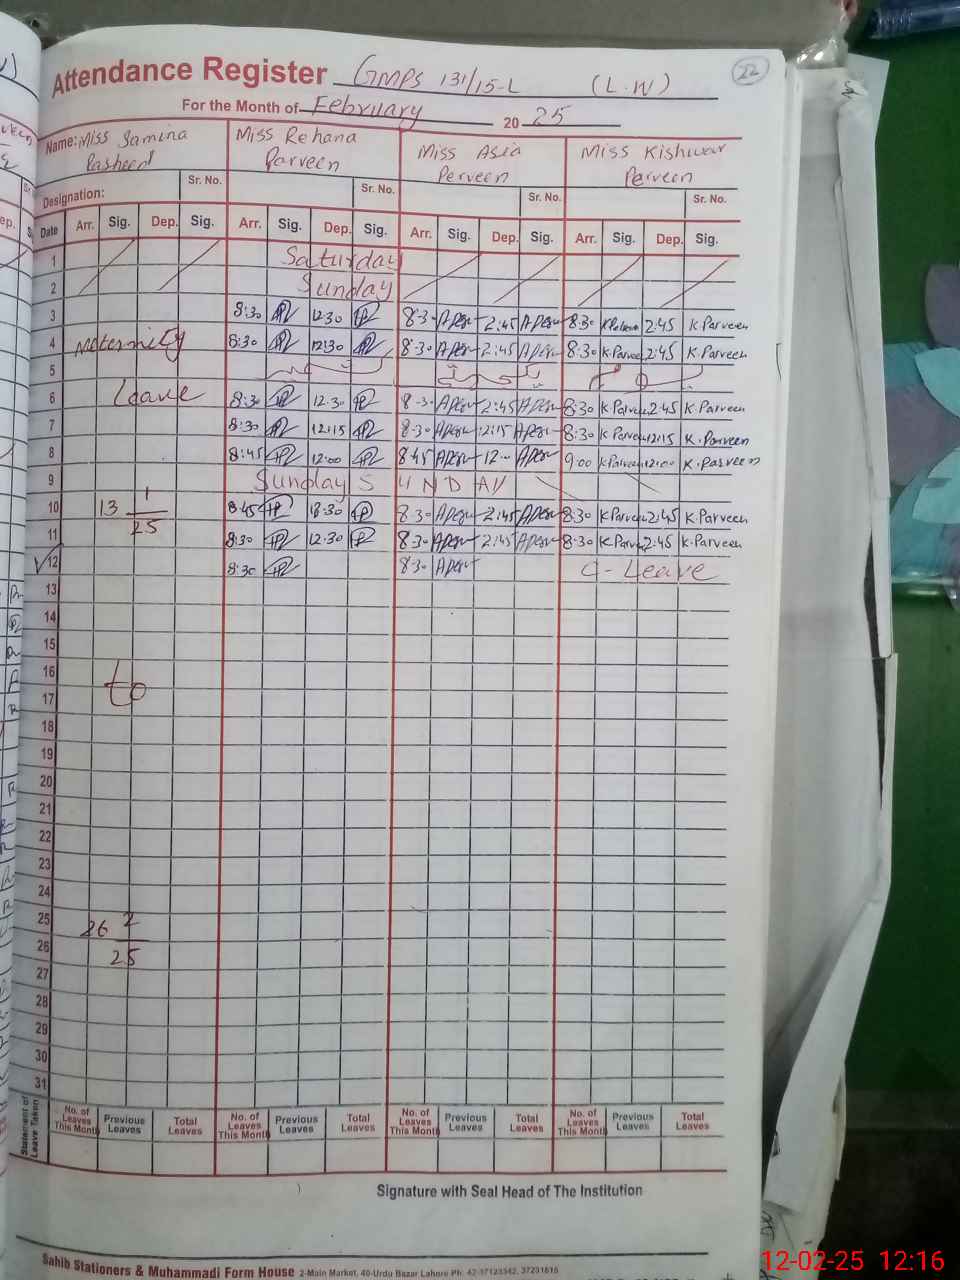 Attendance Register GMPS 131/15-L (L.W) 22
For the Month of February 2025
Name: Miss Samina Rasheed Miss Rehana Parveen Miss Asia Perveen Miss Kishwar Perveen
Designation: Sr. No. Sr. No. Sr. No. Sr. No.
Date Arr. Sig. Dep. Sig. Arr. Sig. Dep. Sig. Arr. Sig. Dep. Sig. Arr. Sig. Dep. Sig.
1 Saturday
2 Sunday
3 8:30 12:30 8:30 2:45 8:30 2:45 K.Parveen
4 Maternity 8:30 12:30 8:30 2:45 8:30 K.Parvee 2:45 K.Parveen
5
6 Leave 8:30 12:30 8:30 2:45 8:30 2:45 K.Parveen
7 8:30 12:15 8:30 2:15 8:30 12:15 K.Parveen
8 8:45 12:00 8:45 12:00 9:00 12:00 K.Parveen
9 Sunday SUNDAY
10 13 1/25 8:45 8:30 2:45 8:30 2:45 K.Parveen
11 8:30 12:30 8:30 2:45 8:30 2:45 K.Parveen
12 8:30 8:30 C-Leave
13
14
15
16 to
17
18
19
20
21
22
23
24
25 26 2/25
26
27
28
29
30
31
Statement of Leave Taken No. of Leaves This Month Previous Leaves Total Leaves No. of Leaves This Month Previous Leaves Total Leaves No. of Leaves This Month Previous Leaves Total Leaves No. of Leaves This Month Previous Leaves Total Leaves
Signature with Seal Head of The Institution
Sahib Stationers & Muhammadi Form House 2-Main Market, 40-Urdu Bazar Lahore Ph: 42-37123342, 37231816
12-02-25 12:16